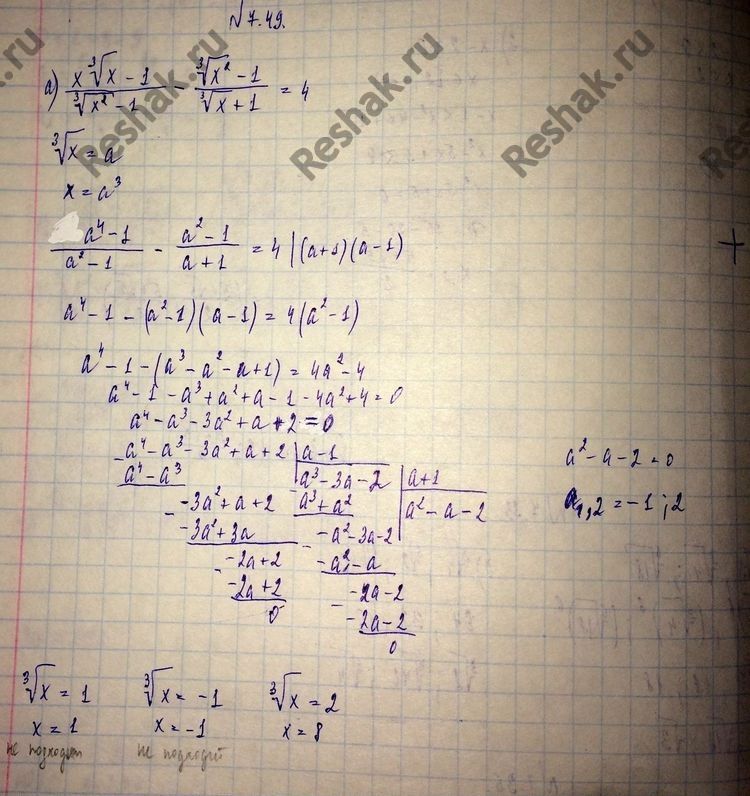 № 7.49.
а) (x∛x - 1)/(∛x² - 1) - (∛x² - 1)/(∛x + 1) = 4
∛x = a
x = a³
(a⁴ - 1)/(a² - 1) - (a² - 1)/(a + 1) = 4 | (a+1)(a-1)
a⁴ - 1 - (a² - 1)(a - 1) = 4(a² - 1)
a⁴ - 1 - (a³ - a² - a + 1) = 4a² - 4
a⁴ - 1 - a³ + a² + a - 1 - 4a² + 4 = 0
a⁴ - a³ - 3a² + a + 2 = 0
a⁴ - a³ - 3a² + a + 2 | a - 1
a⁴ - a³ | a³ - 3a - 2 | a + 1
-3a² + a + 2 | a³ + a² | a² - a - 2
-3a² + 3a | -a² - 3a - 2
-2a + 2 | -a² - a
-2a + 2 | -2a - 2
0 | -2a - 2
0
a² - a - 2 = 0
a₁,₂ = -1; 2
∛x = 1 ∛x = -1 ∛x = 2
x = 1 x = -1 x = 8
не подходит не подходит
Reshak.ru
Reshak.ru
Reshak.ru
Reshak.ru